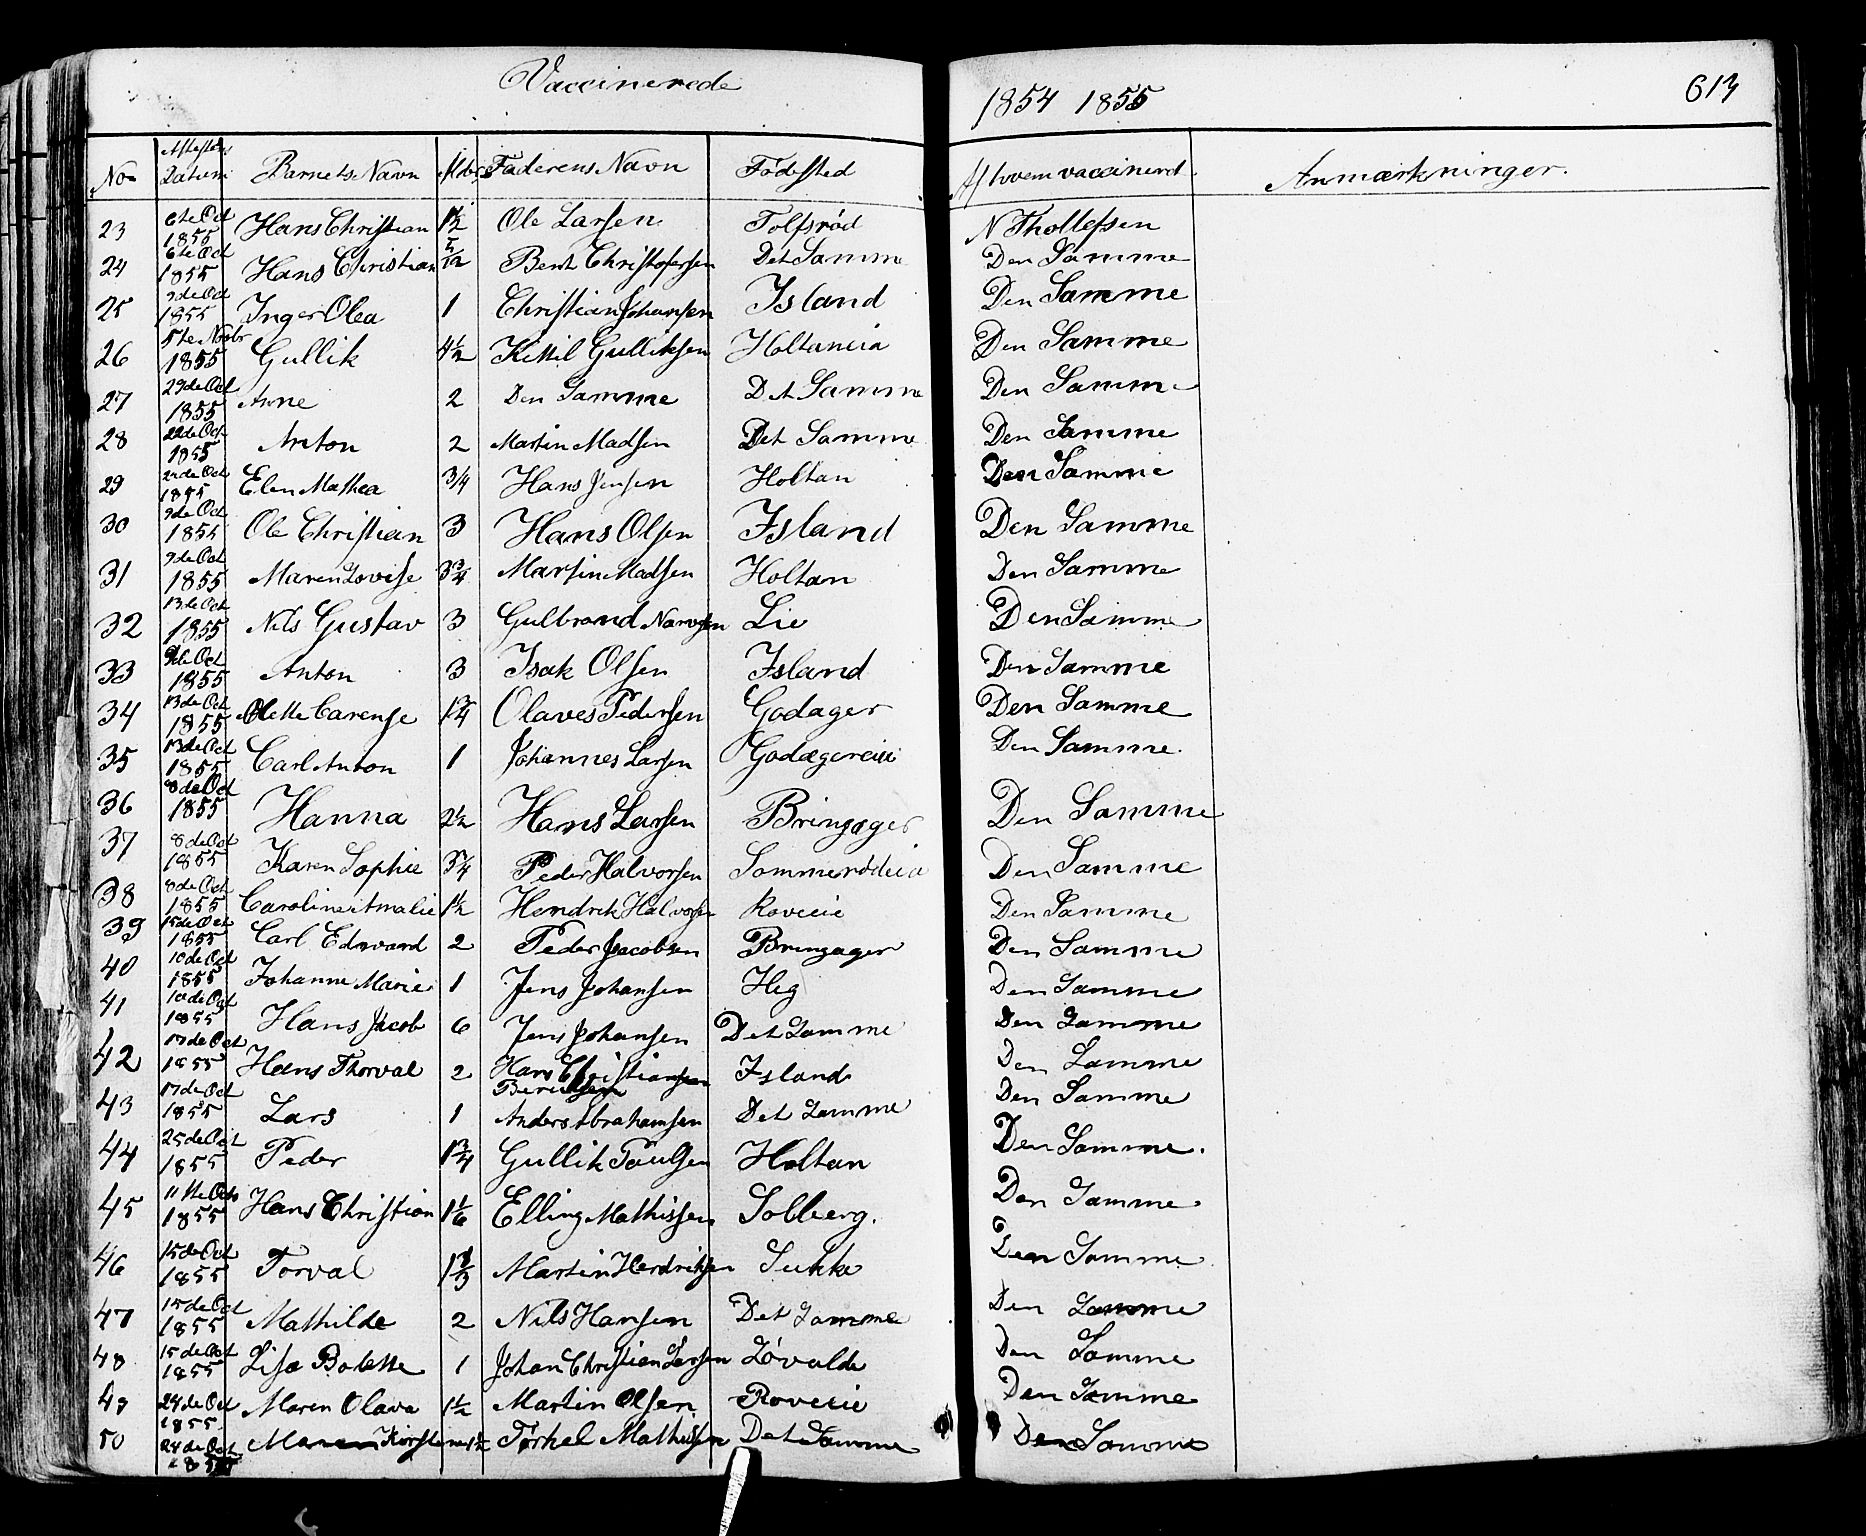 Vaccinerede 1854 1855 613
No Attestens Datum Barnets Navn Alder Faderens Navn Fødested Af hvem vaccinerd. Anmærkninger.
23 6te Oct 1855 Hans Christian 1½ Ole Larsen Tolfsrød N Thollefsen
24 6te Oct 1855 Hans Christian 5/12 Bent Christofersen Det Samme Den Samme
25 9de Oct 1855 Inger Olea 1 Christian Johansen Island Den Samme
26 5te Novbr 1855 Gullik 4½ Kittil Gulliksen Holtaneia Den Samme
27 29de Oct 1855 Anne 2 Den Samme Det Samme Den Samme
28 22de Oct 1855 Anton 2 Martin Madsen Det Samme Den Samme
29 22de Oct 1855 Elen Mathea 3/4 Hans Jensen Holtan Den Samme
30 9de Oct 1855 Ole Christian 3 Hans Olsen Island Den Samme
31 9de Oct 1855 Maren Lovise 3¾ Martin Madsen Holtan Den Samme
32 13de Oct 1855 Nils Gustav 3 Gulbrand Lie Den Samme
33 9de Oct 1855 Anton 3 Isak Olsen Island Den Samme
34 13de Oct 1855 Mette Carense 1¾ Olaves Pedersen Godager Den Samme
35 13de Oct 1855 Carl Anton 1 Johannes Larsen Godagereie Den Samme.
36 8de Oct 1855 Hanna 2½ Hans Larsen Bringager Den Samme
37 8de Oct 1855 Karen Sophie ¾ Peder Halvorsen Sommerødeia Den Samme
38 8de Oct 1855 Caroline Amalie 1½ Hendrik Halvorsen Roveeie Den Samme
39 15de Oct 1855 Carl Edward 2 Peder Jacobsen Bringager Den Samme
40 10de Oct 1855 Johanne Marie 1 Jens Johansen Heg Den Samme
41 10de Oct 1855 Hans Jacob 6 Jens Johansen Det Samme Den Samme
42 17de Oct 1855 Hans Thorval 2 Hans Christiansen Island Den Samme
43 17de Oct 1855 Lars 1 Anders Abrahamsen Det Samme Den Samme
44 25de Oct 1855 Peder 1¾ Gullik Paulsen Holtan Den Samme.
45 11te Octb 1855 Hans Christian 1 1/6 Elling Mathissen Solberg. Den Samme
46 15de Oct 1855 Torval 1⅔ Martin Hendriksen Sukke Den Samme
47 15de Oct 1855 Mathilde 2 Nils Hansen Det Samme Den Samme
48 15de Oct 1855 Lisa Bolette 1 Johan Christian Larsen Løvalde Den Samme
49 24de Oct 1855 Maren Olava 1½ Martin Olsen Roveeie Den Samme
50 24de Oct 1855 Kirstene 1½ Torkel Mathissen Det Samme Den Samme